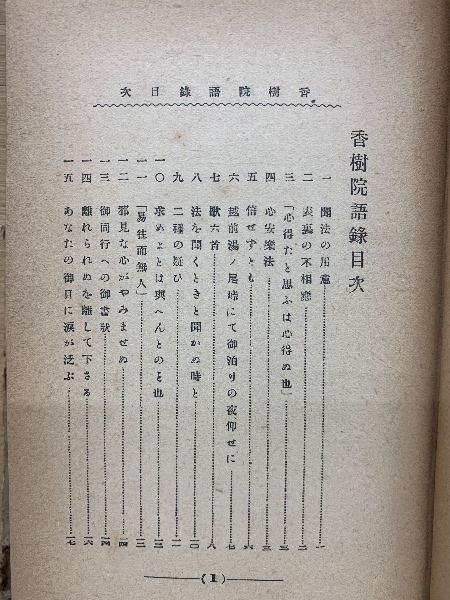 香樹院語錄目次
香樹院語錄目次
一 聞法の用意……一
二 表裏の不相應……二
三 「心得たと思ふは心得ぬ也」……三
四 心安樂法……五
五 信ぜずとも……六
六 越前湯ノ尾峠にて御泊りの夜、仰せに……七
七 歌六首……八
八 法を聞くときと聞かぬ時と……一〇
九 二種の疑ひ……一一
一〇 求めよとは與へんとのを也……一三
一一 「易往而無人」……一三
一二 邪見な心がやみませぬ……一四
一三 御同行への御書狀……一四
一四 離れられぬを離して下さる……一六
一五 あなたの御目に淚が泛ぶ……一七
(1)